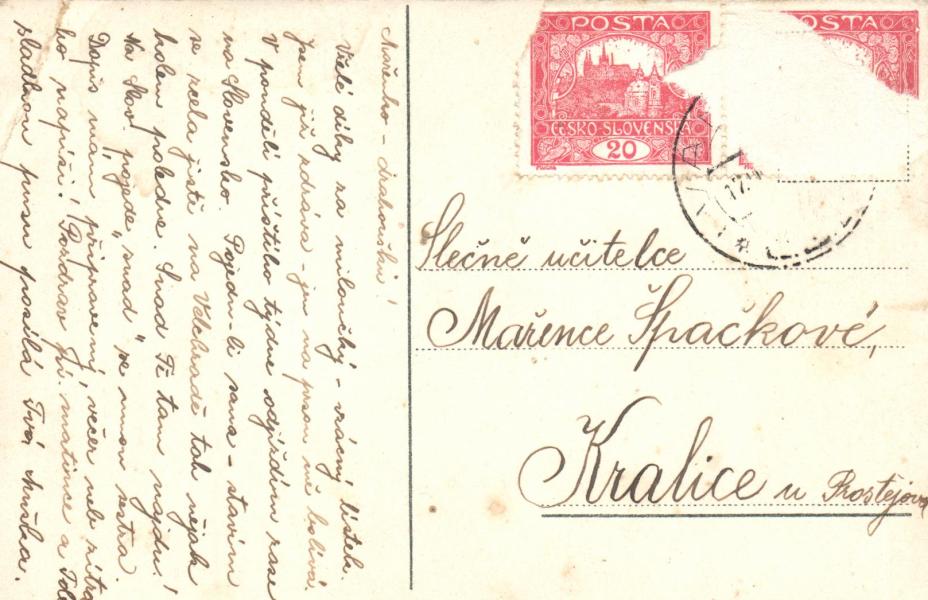 POSTA
ČESKO-SLOVENSKÁ
20
POSTA
17.
Slečně učitelce
Mařence Špačkové,
Kralice u Prostějova
Mařenko - drahoušku!
Vřelé díky za miloučký - vzácný lístek.
Jsem již zdráva - jen na prsou mě bolívá.
V pondělí příštího týdne odjíždím zase
na Slovensko. Pojedu-li sama - stavím
se zcela jistě na Velehradě tak nějak
kolem poledne. Snad Tě tam najdu!
Na Slov. pojede "snad" se mnou sestra.
Dopis mám připravený, večer neb zítra
ho napíši! Pozdrav matince a
sladkou pusu posílá Tvá Anežka.